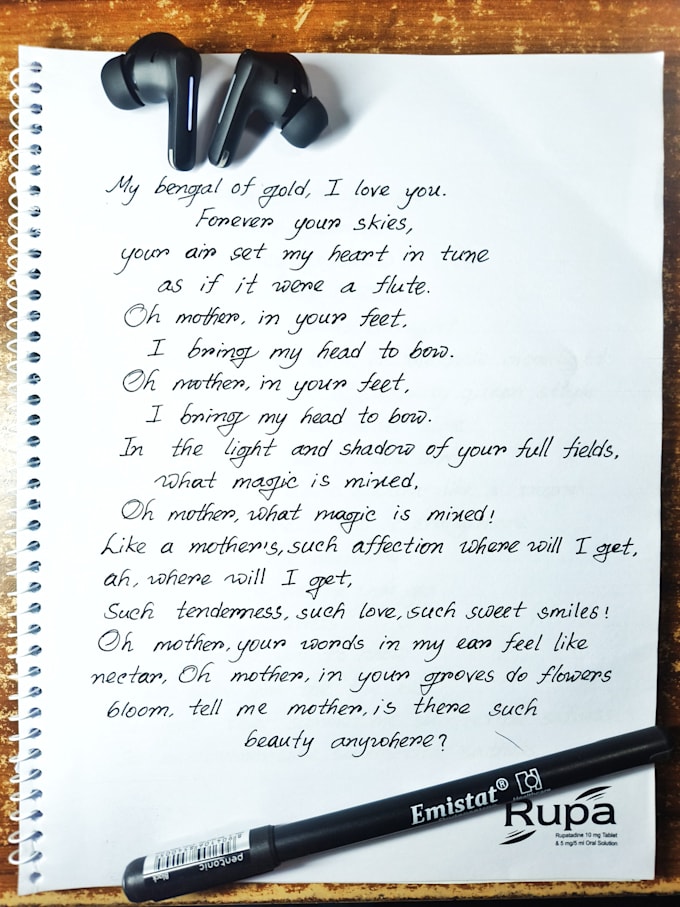 My bengal of gold, I love you.
Forever your skies,
your air set my heart in tune
as if it were a flute.
Oh mother, in your feet,
I bring my head to bow.
Oh mother, in your feet,
I bring my head to bow.
In the light and shadow of your full fields,
what magic is mixed,
Oh mother, what magic is mixed!
Like a mother's, such affection where will I get,
ah, where will I get,
Such tenderness, such love, such sweet smiles!
Oh mother, your words in my ear feel like
nectar, Oh mother, in your groves do flowers
bloom, tell me mother, is there such
beauty anywhere?
Emistat®
Rupa
Rupatadine 10 mg Tablet
& 5 mg/5 ml Oral Solution
pentonic